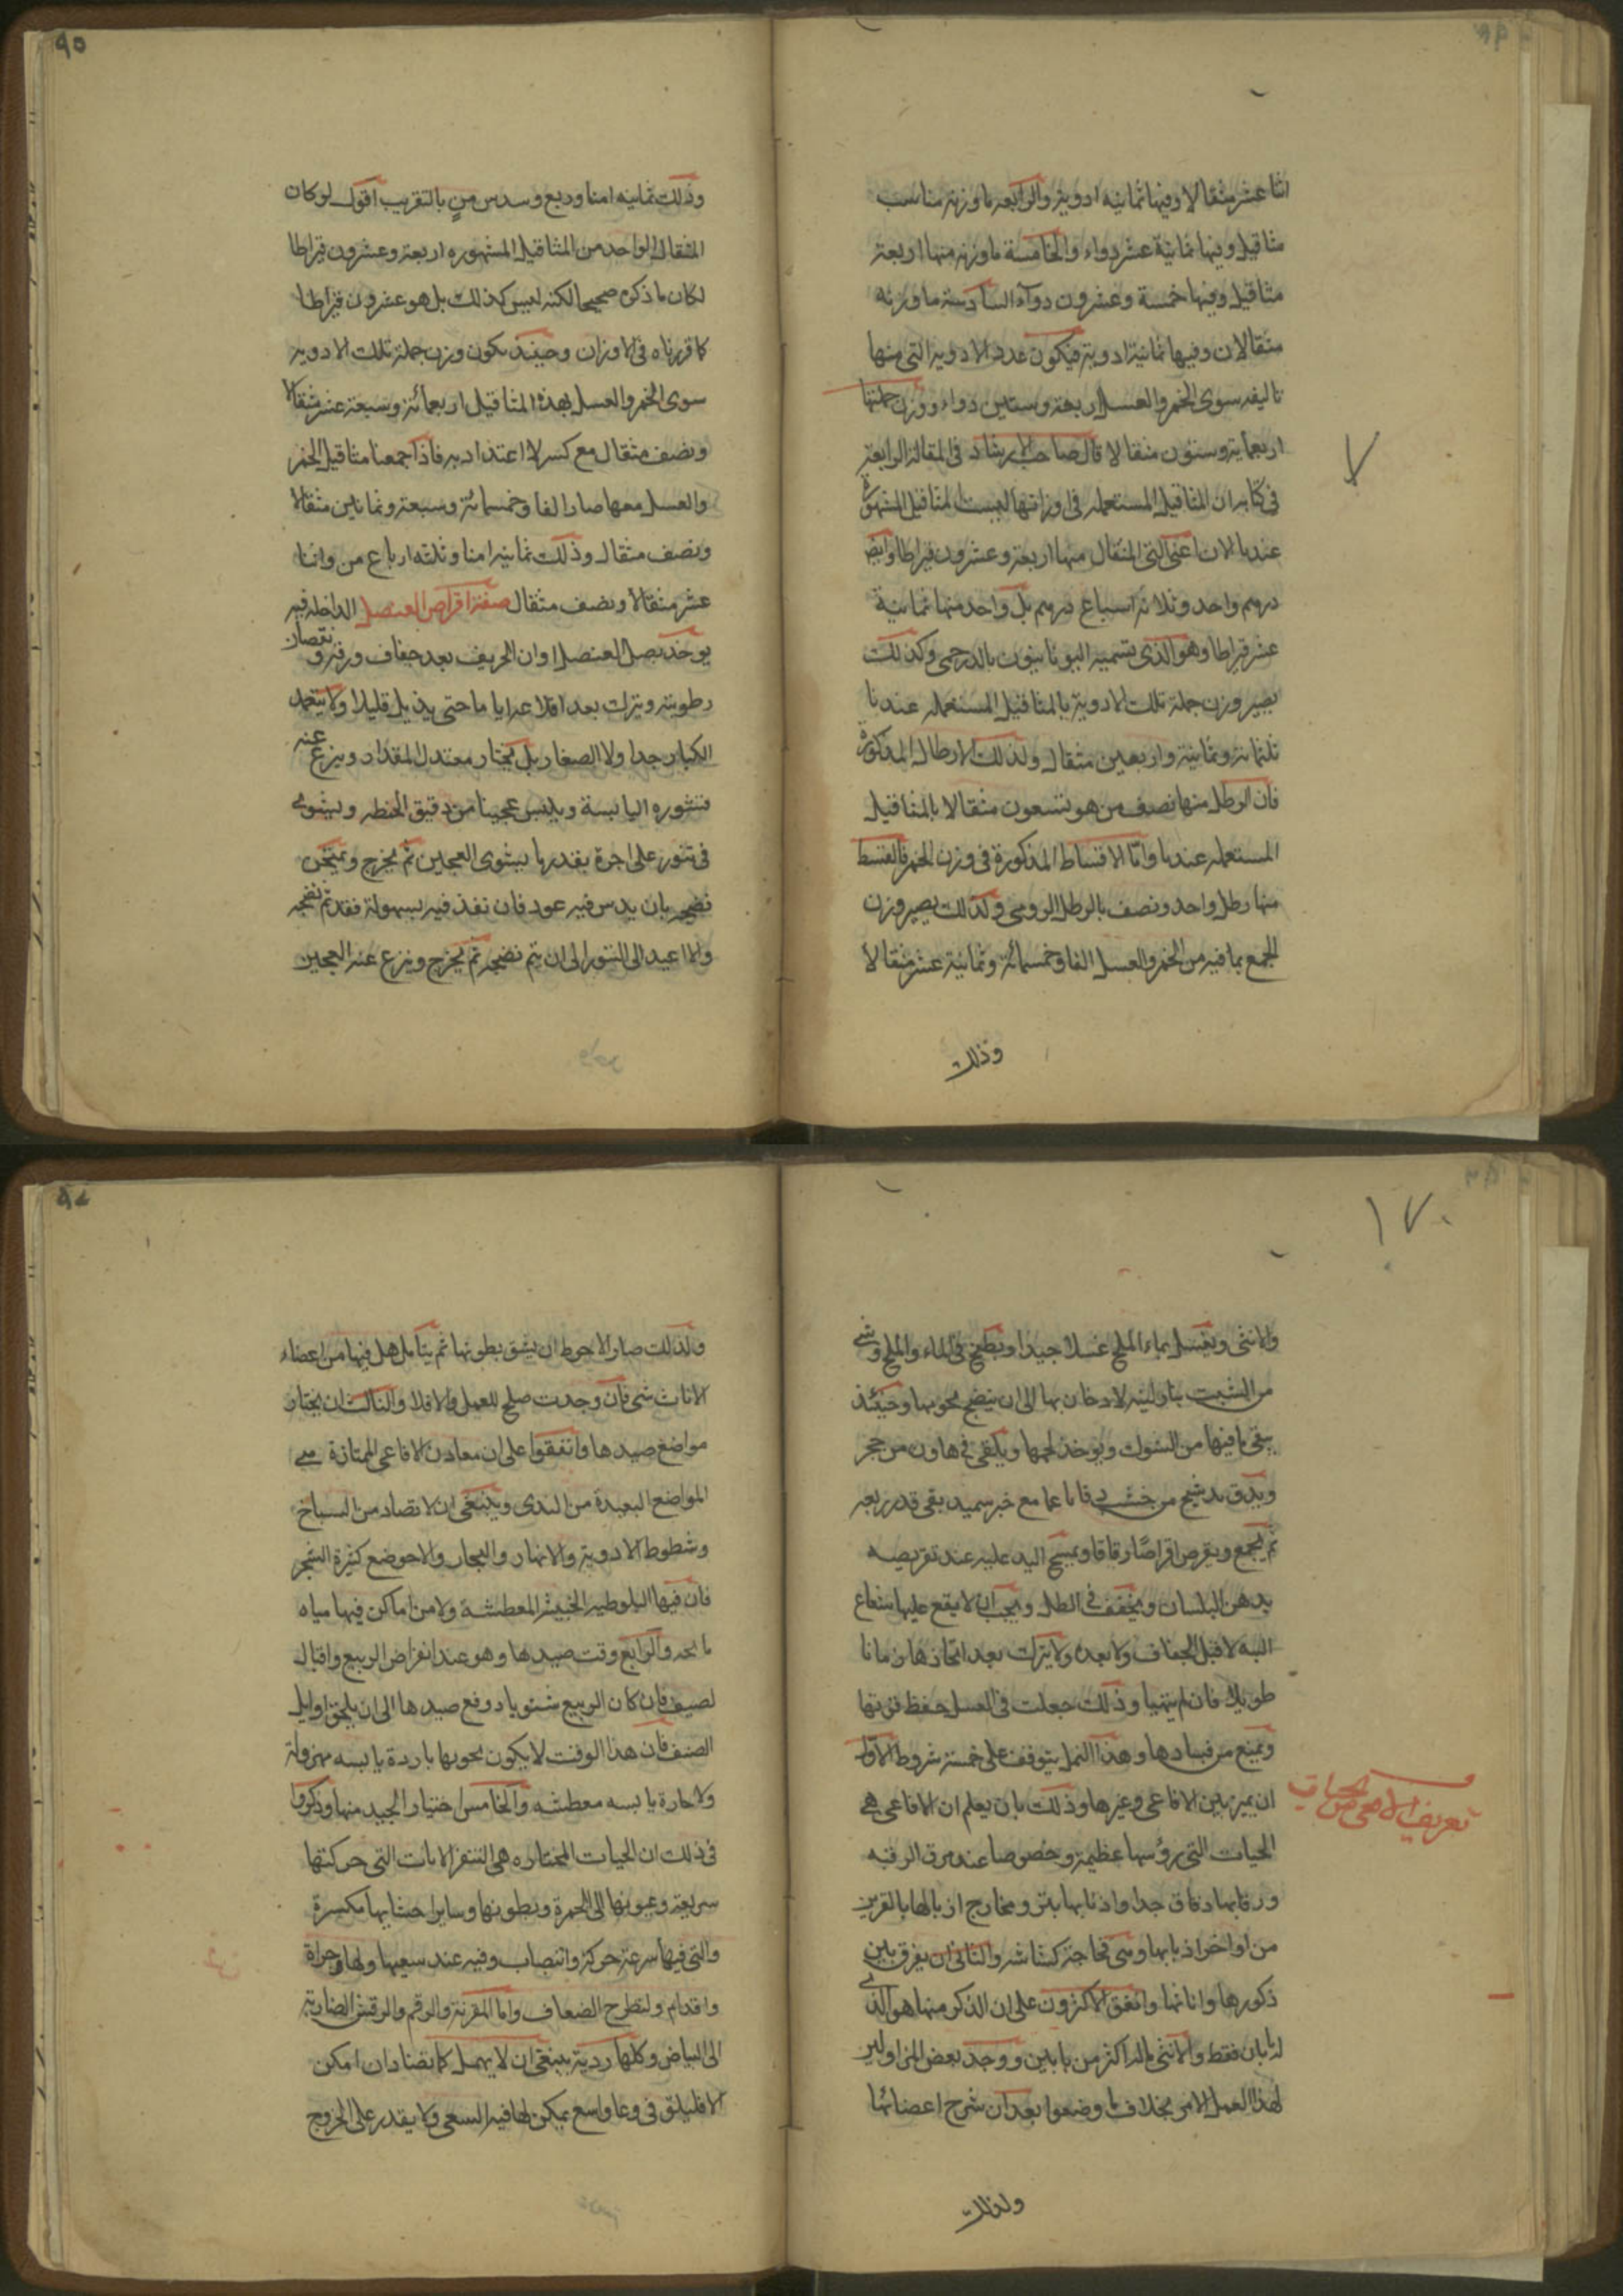 اثنا عشر مثقالا وفيها ثمانيه ادويه والرابعه ما وزنه مناسب
مثاقيل وفيها ثمانية عشر دواء والخامسة ما وزنه منها اربعة
مثاقيل وفيها خمسة وعشرون دواء السادسة ما وزنه
مثقالان وفيها ثمانية ادوية فيكون عدد الادوية التي منها
تاليفه سوى الخمر والعسل اربعة وستين دواء ووزن جملتها
اربعماية وستون مثقالا قال صاحب الارشاد في المقالة الرابعة
في كتابه ان المثاقيل المستعمله في اوزانها ليست المثاقيل المشهورة
عندنا الان اعني التي المثقال منها اربعة وعشرون قيراطا وايض
درهم واحد وثلاثة اسباع درهم بل واحد منها ثمانية
عشر قيراطا وهو الذي يسميه اليونانيون بالدرخمى وكذلك
يصير وزن جملة تلك الادوية بالمثاقيل المستعمله عندنا
ثلثمائة وثمانية واربعين مثقال وكذلك الارطال المذكورة
فان الرطل منها نصف من هو تسعون مثقالا بالمثاقيل
المستعمله عندنا واما الاقساط المذكورة في وزن الخمر فالقسط
منها رطل واحد ونصف بالرطل الرومي وكذلك يصير وزن
الجمع بما فيه من الخمر والعسل الفا وخمسمائة وثمانية عشر مثقالا
وذلك
٩٥
وذلك ثمانيه امنا وربع وسدس من بالتقريب اقول لو كان
المثقال الواحد من المثاقيل المشهوره اربعة وعشرون قيراطا
لكان ما ذكره صحيحا لكنه ليس كذلك بل هو عشرون قيراطا
كما قررناه في الاوزان وحينئذ يكون وزن جملة تلك الادوية
سوى الخمر والعسل بهذه المثاقيل اربعمائة وسبعة عشر مثقالا
ونصف مثقال مع كسر لا اعتداد به فاذا جمعنا مثاقيل الخمر
والعسل معها صار الفا وخمسمائة وسبعة وثمانين مثقالا
ونصف مثقال وذلك ثمانيه امنا وثلثه ارباع من واثنا
عشر مثقالا ونصف مثقال صفة اقراص العنصل الداخلة فيه
يوخذ بصل العنصل اوان الخريف بعد جفاف ورقه ونقصان
رطوبته ويترك بعد اقلاعه اياما حتى يذبل قليلا ولا يتعمد
الكبار جدا ولا الصغار بل يختار معتدل المقدار وينزع عنه
قشوره اليابسة ويلبس عجينا من دقيق الحنطه ويشوى
في تنور على اجرة بقدر ما يشوى العجين ثم يخرج ويمتحن
نضجه بان يدس فيه عود فان نفذ فيه بسهولة فقد تم نضجه
والا اعيد الى التنور الى ان يتم نضجه ثم يخرج وينزع عنه العجين
١٧٠
والانثى ويغسل بماء الملح غسلا جيدا ويطبخ في الماء والملح وشي
من الشبت بنار لينه لا دخان بها الى ان ينضج لحومها وحينئذ
ينقى ما فيها من الشوك ويوخذ لحمها ويلقى في هاون من حجر
ويدق بدستج من خشب دقا ناعما مع خبز سميد نقى قدر ربعه
ثم يجمع ويقرص اقراصا رقاقا ويمسح اليد عليه عند تقريصه
بدهن البلسان ويجفف في الظل ويجب ان لا يقع عليها شعاع
البته لا قبل الجفاف ولا بعده ولا يترك بعد اتخاذها زمانا
طويلا فان لم يتهيا وذلك جعلت في العسل حفظ قوتها
ويمنع من فسادها وهذا العمل يتوقف على خمسة شروط الاول
ان يميز بين الافاعي وغيرها وذلك بان يعلم ان الافاعي هي
الحيات التي رؤسها عظيمة وخصوصا عند مرق الرقبه
ورقابها دقاق جدا واذنابها بتر ومخارج ازبالها بالقرب
من اواخر اذنابها وهي قحاحة كشاشه والثاني ان يفرق بين
ذكورها واناثها واتفق الاكثرون على ان الذكر منها هو الذي
له نابان فقط والانثى ما له اكثر من نابين ووجد بعض المزاولين
لهذا العمل الامر بخلاف ما وضعوا بعد ان شرح اعضائها
ولذلك
تعريف الافعى من الحيات
ولذلك صار الاحوط ان يشق بطونها ثم يتامل هل فيها من اعضاء
الاناث شى فان وجدت صلح للعمل والا فلا والثالث ان يختار
مواضع صيدها واتفقوا على ان معادن الافاعي الممتازة هي
المواضع البعيدة من الندى وينبغي ان لا تصاد من السباخ
وشطوط الادوية والانهار والبحار ولا موضع كثيرة الشجر
فان فيها البلوطيه الخبيثه المعطشة ولا من اماكن فيها مياه
مالحه والرابع وقت صيدها وهو عند انقراض الربيع واقبال
لصيف فان كان الربيع شتويا دوفع صيدها الى ان يلحق اوايل
الصيف فان هذا الوقت لا يكون لحومها باردة يابسه مهزولة
ولا حارة يابسه معطشه والخامس اختيار الجيد منها وذكروا
في ذلك ان الحيات المختاره هي الشقر الاناث التي حركتها
سريعة وعيونها الى الحمرة وبطونها وساير احشايها مكسرة
والتي فيها سرعة حركة وانتصاب وفيه عند سعيها ولها جراة
واقدام ولتطرح الضعاف واما المقرنة والرقم والرقش الضاربة
الى البياض وكلها ردية ينبغي ان لا يهمل كما تصاد ان امكن
الا فليلق في وعا واسع يمكن لها فيه السعى ولا يقدر على الخروج